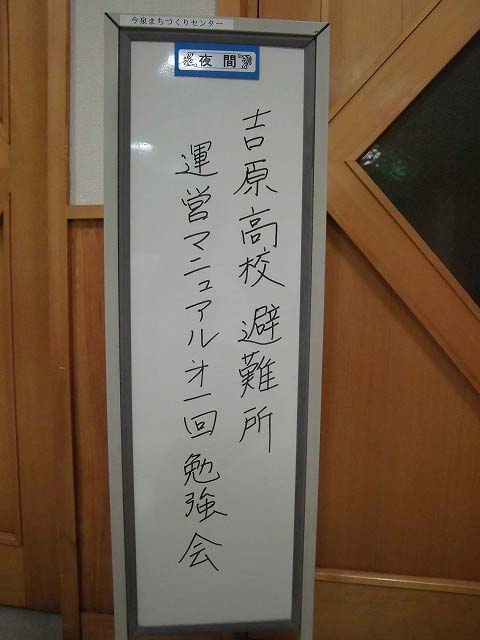 今泉まちづくりセンター
夜間
吉原高校避難所
運営マニュアル才一回勉強会